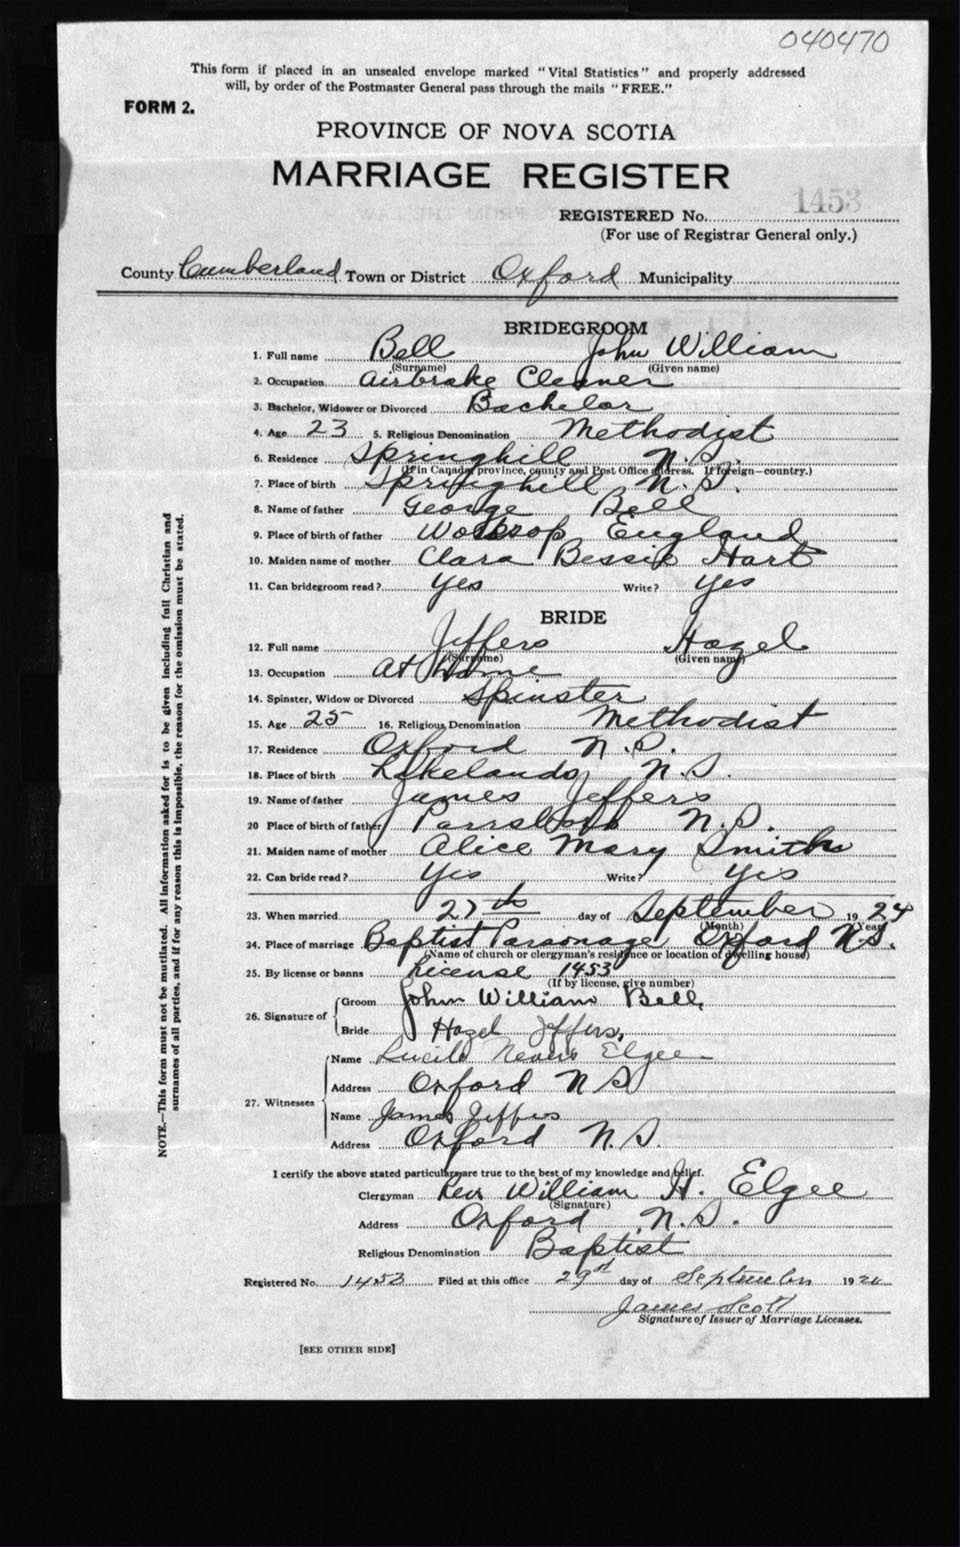 040470
This form if placed in an unsealed envelope marked "Vital Statistics" and properly addressed
will, by order of the Postmaster General pass through the mails "FREE."
FORM 2.
PROVINCE OF NOVA SCOTIA
MARRIAGE REGISTER
REGISTERED No. 1453
(For use of Registrar General only.)
County Cumberland Town or District Oxford Municipality
BRIDEGROOM
1. Full name Bell John William
(Surname) (Given name)
2. Occupation Airbrake Cleaner
3. Bachelor, Widower or Divorced Bachelor
4. Age 23 5. Religious Denomination Methodist
6. Residence Springhill N.S.
(If in Canada, province, county and Post Office address. If foreign—country.)
7. Place of birth Springhill N.S.
8. Name of father George Bell
9. Place of birth of father Worksop England
10. Maiden name of mother Clara Bessie Hart
11. Can bridegroom read? Yes Write? Yes
BRIDE
12. Full name Jeffers Hazel
(Surname) (Given name)
13. Occupation At Home
14. Spinster, Widow or Divorced Spinster
15. Age 25 16. Religious Denomination Methodist
17. Residence Oxford N.S.
18. Place of birth Lakelands N.S.
19. Name of father James Jeffers
20 Place of birth of father Parrsboro N.S.
21. Maiden name of mother Alice Mary Smith
22. Can bride read? Yes Write? Yes
23. When married 27th day of September 1924
(Month) (Year)
24. Place of marriage Baptist Parsonage Oxford N.S.
(Name of church or clergyman's residence or location of dwelling house)
25. By license or banns License 1453
(If by license, give number)
26. Signature of Groom John William Bell
Bride Hazel Jeffers
27. Witnesses Name Elgee
Address Oxford N S
Name James Jeffers
Address Oxford N.S.
I certify the above stated particulars are true to the best of my knowledge and belief.
Clergyman Rev William H. Elgee
(Signature)
Address Oxford N.S.
Religious Denomination Baptist
Registered No. 1453 Filed at this office 29 day of September 1924
James Scott
Signature of Issuer of Marriage Licenses.
[SEE OTHER SIDE]
NOTE.—This form must not be mutilated. All information asked for is to be given including full Christian and
surnames of all parties, and if for any reason this is impossible, the reason for the omission must be stated.